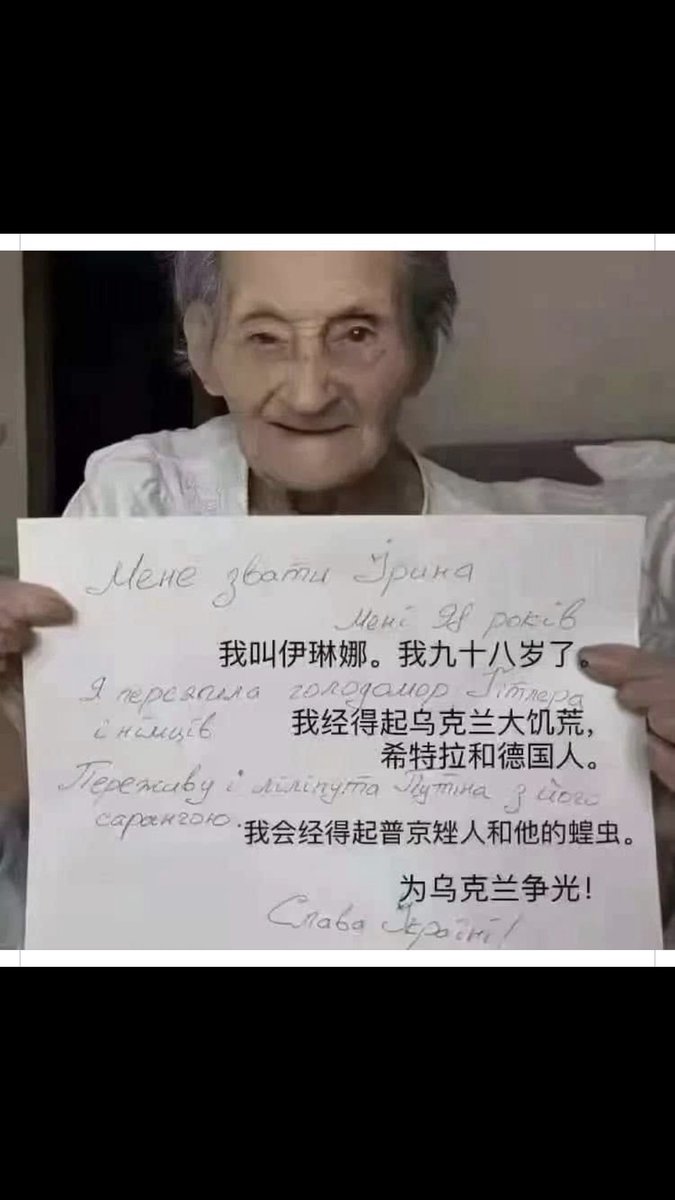 Мене звати Ірина
Мені 98 років
我叫伊琳娜。我九十八岁了。
Я пережила голодомор Гітлера
і німців
我经得起乌克兰大饥荒,
希特拉和德国人。
Переживу і ліліпута Путіна з його
саранчою.
我会经得起普京矬人和他的蝗虫。
为乌克兰争光!
Слава Україні!